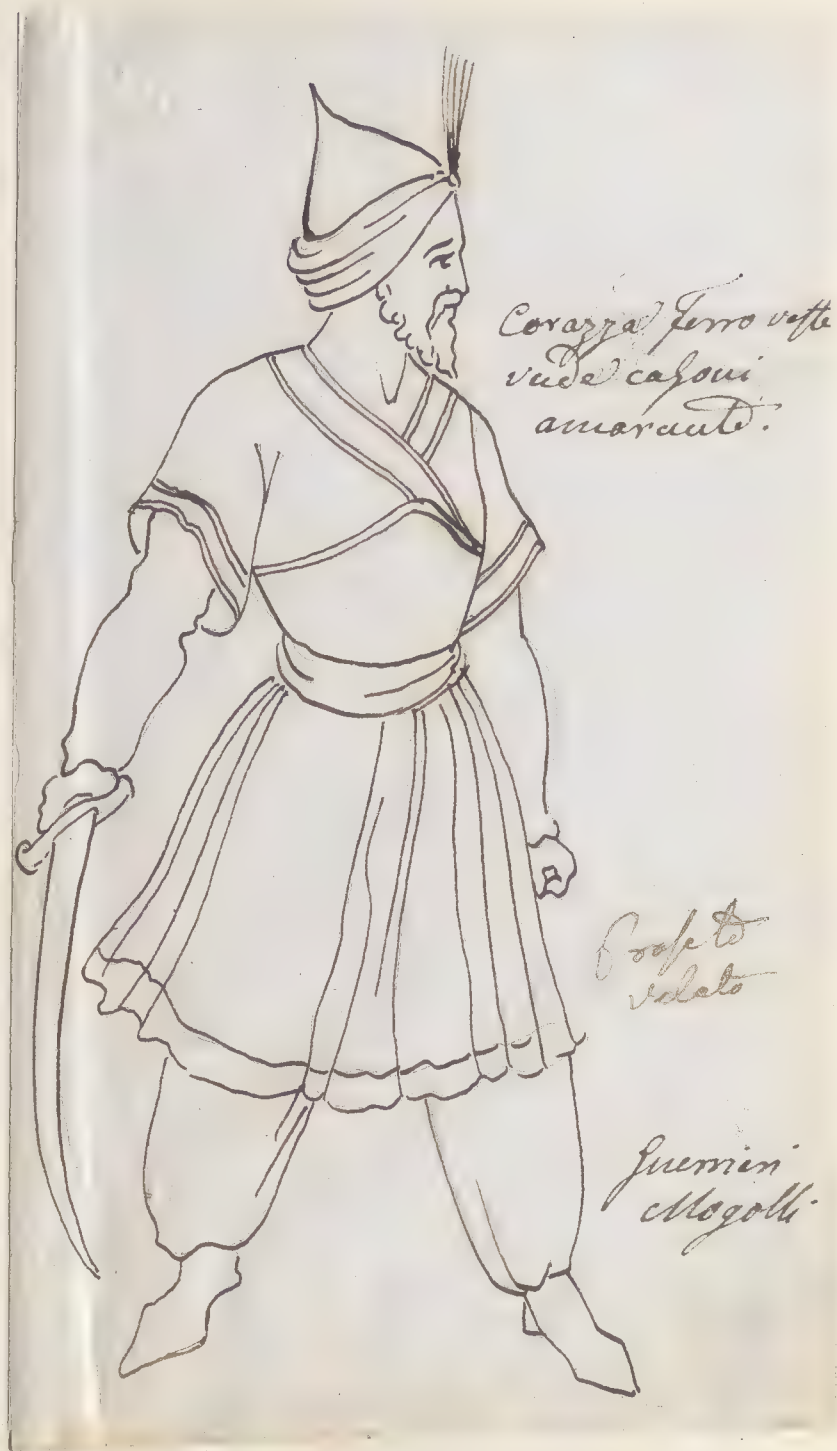 Corazza ferro veste
verde calzoni
amarante.
Profeta
velato
Guerrieri
Mogolli